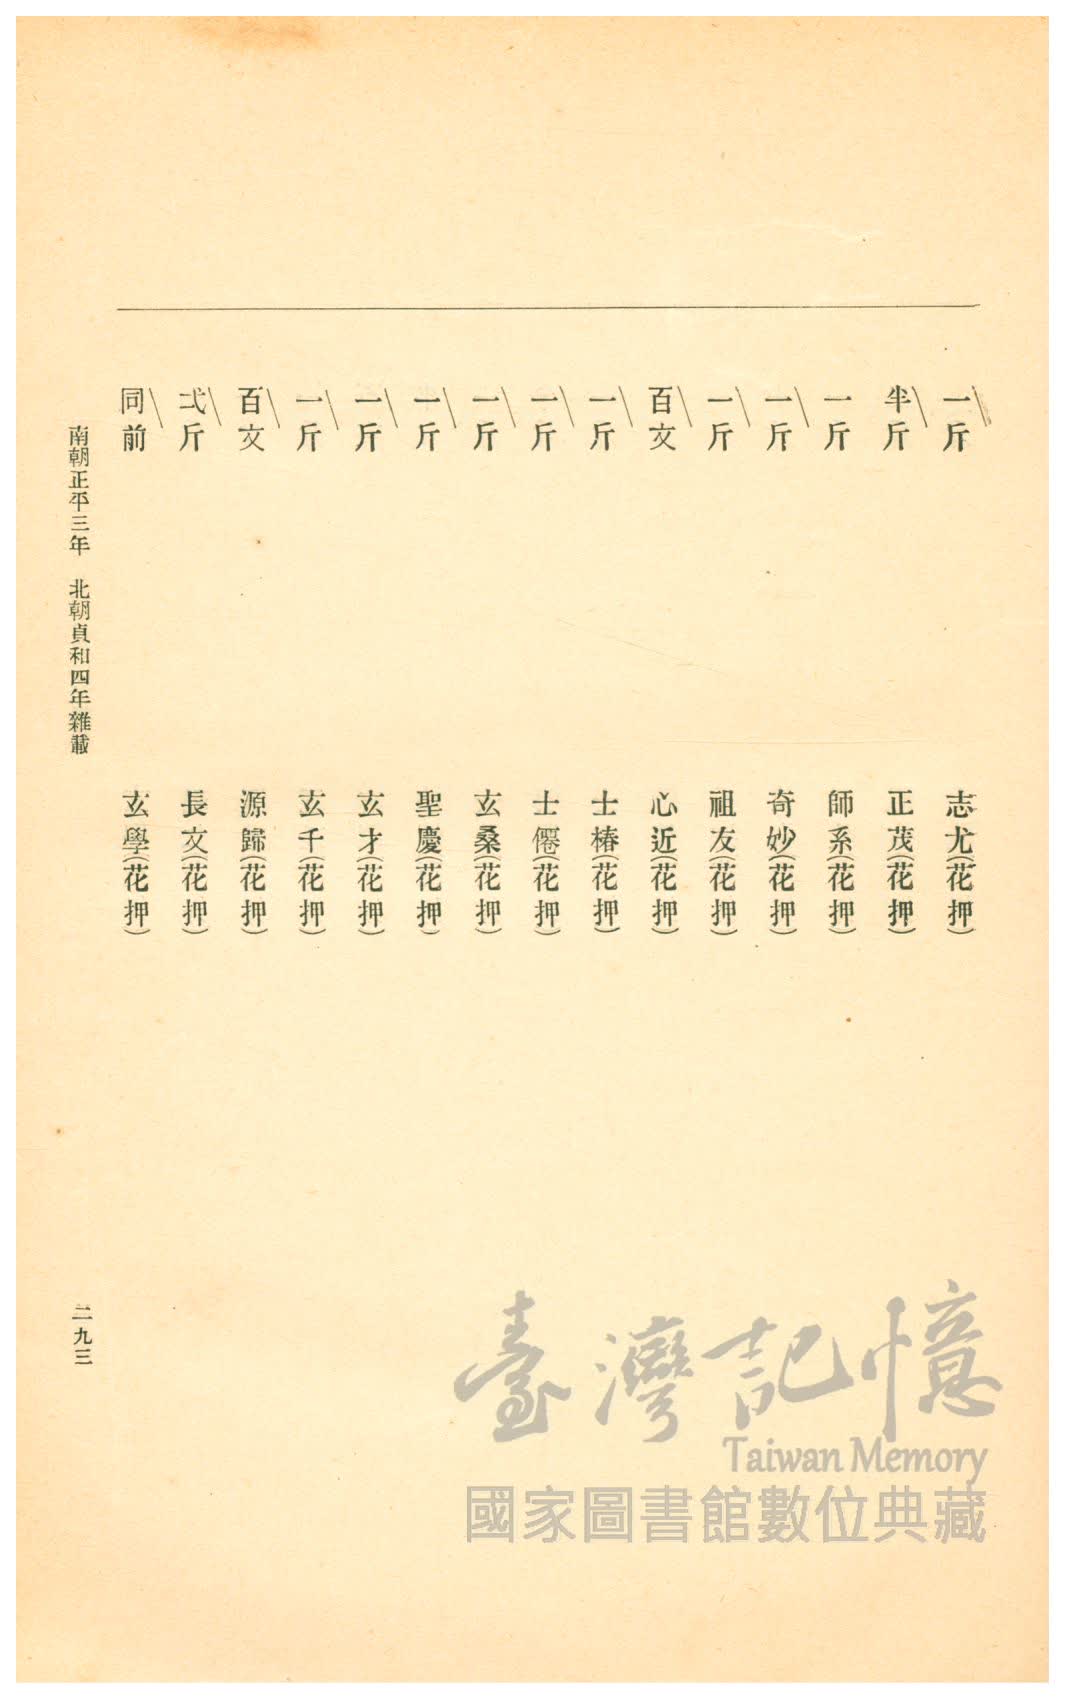 一斤 志尤(花押)
半斤 正茂(花押)
一斤 師系(花押)
一斤 奇妙(花押)
一斤 祖友(花押)
百文 心近(花押)
一斤 士椿(花押)
一斤 士僊(花押)
一斤 玄桑(花押)
一斤 聖慶(花押)
一斤 玄才(花押)
一斤 玄千(花押)
百文 源歸(花押)
弍斤 長文(花押)
同前 玄學(花押)
南朝正平三年 北朝貞和四年雜載
二九三
臺灣記憶
Taiwan Memory
國家圖書館數位典藏